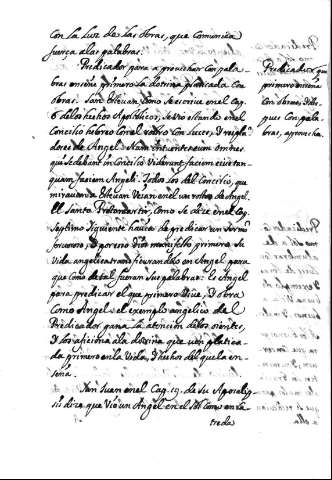 con la Luz de las obras, que comunica
fuerça alas palabras.
Predicador para aprovechar con pala
bras enseñe primero la dotrina platicada con
obras. San Estevan, como se escrive en el Cap.
6 de los hechos Apostolicos, se vio estando en el
Concilio hebreo con el rostro con luces, y
dores de Angel. intuentes eum omnes
qui sedebant in Concilio viderunt faciem eius tan
quam faciem Angeli. Todos los del Concilio, que
miravan a Estevan vieron en el un rostro de Angel.
El Santo Protomartir, como se dize en el Cap.
septimo siguiente havia de predicar un sermon
fervoroso, y por eso Dios manifesto primero su
vida angelica transfigurandolo en Angel para
que como de tal fueran sus palabras: el Angel
para predicar el que primero vive, y obra
como Angel: el exemplo angelico del
Predicador gana la atencion de los oientes,
y los aficiona a la dotrina que ven platica
da primero en la vida, y hechos del que la en
seña.
San Juan en el Cap. 19. de su Apocalip
si dize que vio un Angel en el Sol como en la
treda
Predicador que
primero enseña
con obras, des
pues con pala
bras, aprovecha